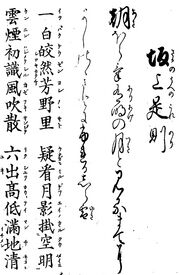 坂上是則
朝ほらけ有明の月とみるまてに
よしのゝさとにふれるしら雪
一白皎然芳野里　疑看月影掛空明
雲煙初識風吹散　六出高低滿地清